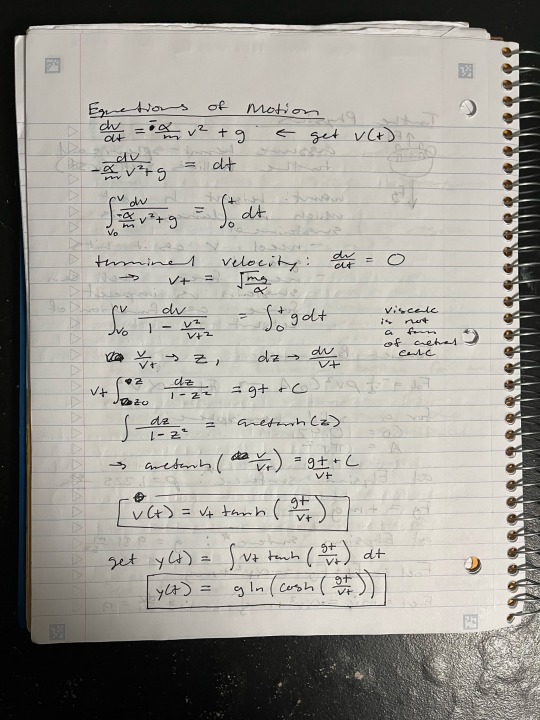 Equations of Motion
dv/dt = -α/m v² + g ← get v(t)
dv/(-α/m v² + g) = dt
∫_{v₀}^{v} dv/(-α/m v² + g) = ∫₀ᵗ dt
terminal velocity: dv/dt = 0
→ v_t = √(mg/α)
∫_{v₀}^{v} dv/(1 - v²/v_t²) = ∫₀ᵗ g dt
is not
a fan
of actual
calc
v/v_t → z, dz → dv/v_t
v_t ∫_{z₀}^{z} dz/(1 - z²) = gt + C
∫ dz/(1 - z²) = arctanh(z)
→ arctanh(v/v_t) = gt/v_t + C
v(t) = v_t tanh(gt/v_t)
get y(t) = ∫ v_t tanh(gt/v_t) dt
y(t) = g ln(cosh(gt/v_t))